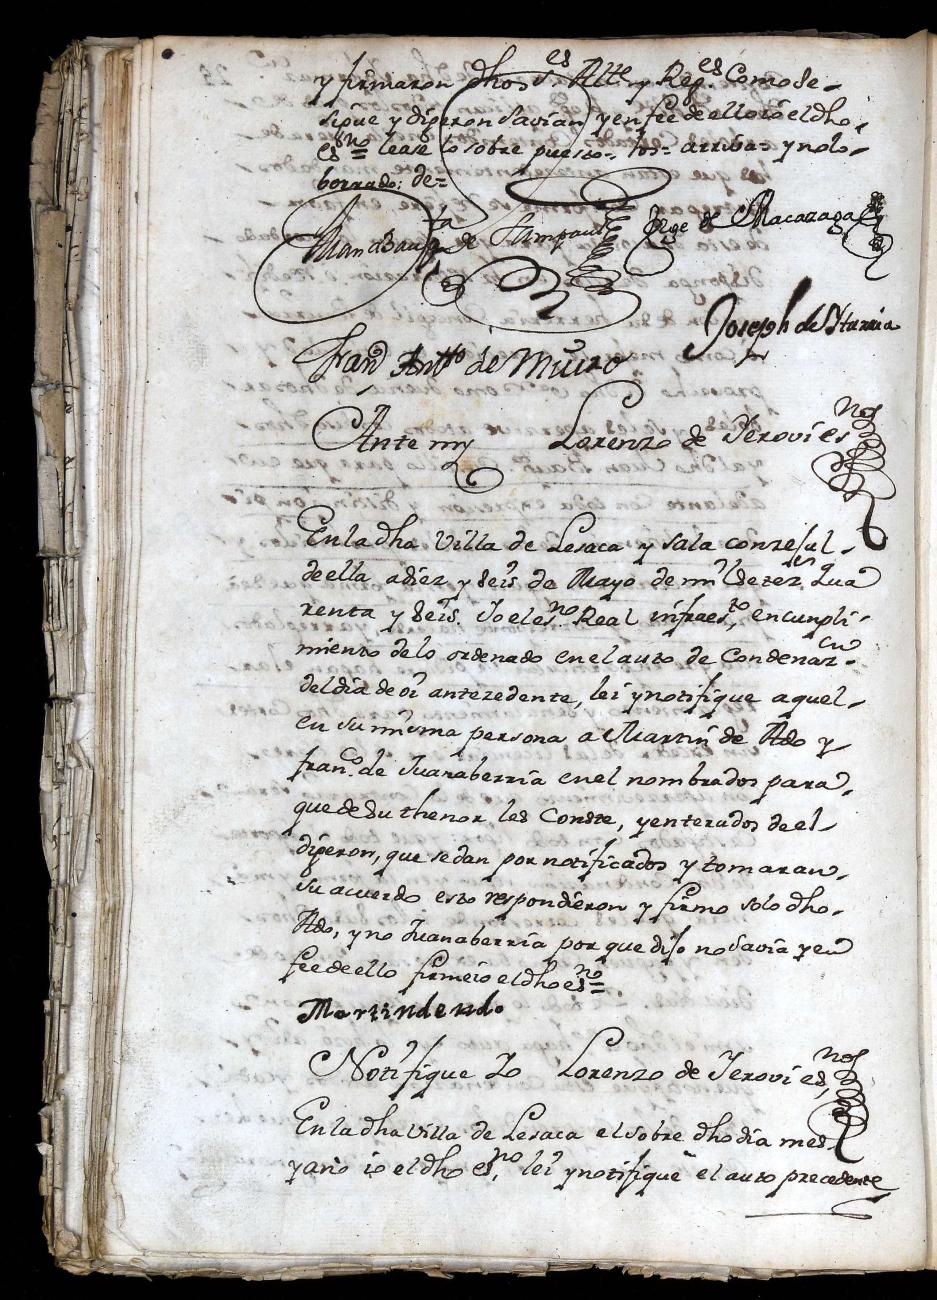 y firmaron dhos S.es Alte y Reg.es Como se
sigue y dijeron Savian y en fee de ello io el dho
es.no lease lo sobre puesto= los= arriba= y no lo
borrado: de=
Juan Baup.ta de
Jorge de Macazaga
Joseph de Yturria
Fran.co Antt.o de Muxo
Ante my Lorenzo de Yerovi es.no
En la dha Villa de Lesaca y Sala conzejul
de ella a diez y seis de Mayo de mil setez.os qua
renta y seis. Yo el es.no Real infraes.to, en cumpli-
miento de lo ordenado en el auto de Condenaz.on
del dia de oi antezedente, lei y notifique aquel
en su misma persona a Martin de Ado y
fran.co de Juanaberria en el nombrados para
que de su thenor les Conste, y enterados de el
dijeron, que se dan por notificados y tomaran
su acuerdo esto respondieron y firmo solo dho
Ado, y no Juanaberria por que dijo no Savia y en
fee de ello firme io el dho es.no=
Martin de Ado
Notifique Yo Lorenzo de Yerovi es.no
En la dha Villa de Lesaca el sobre dho dia mes
y año io el dho es.no, lei y notifique el auto precedente